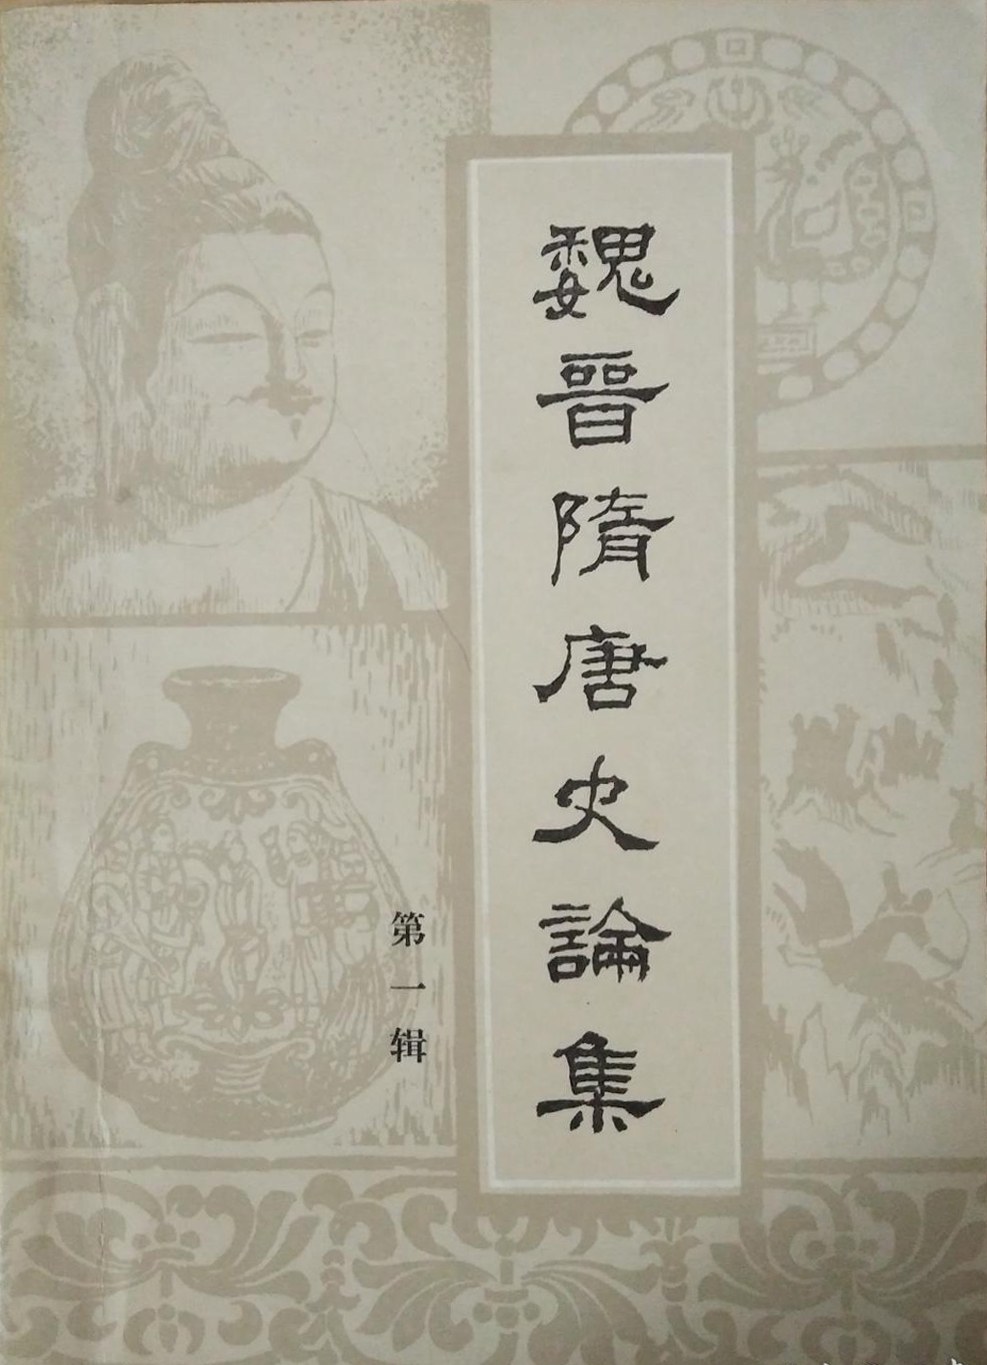 魏晉隋唐史論集
第一辑